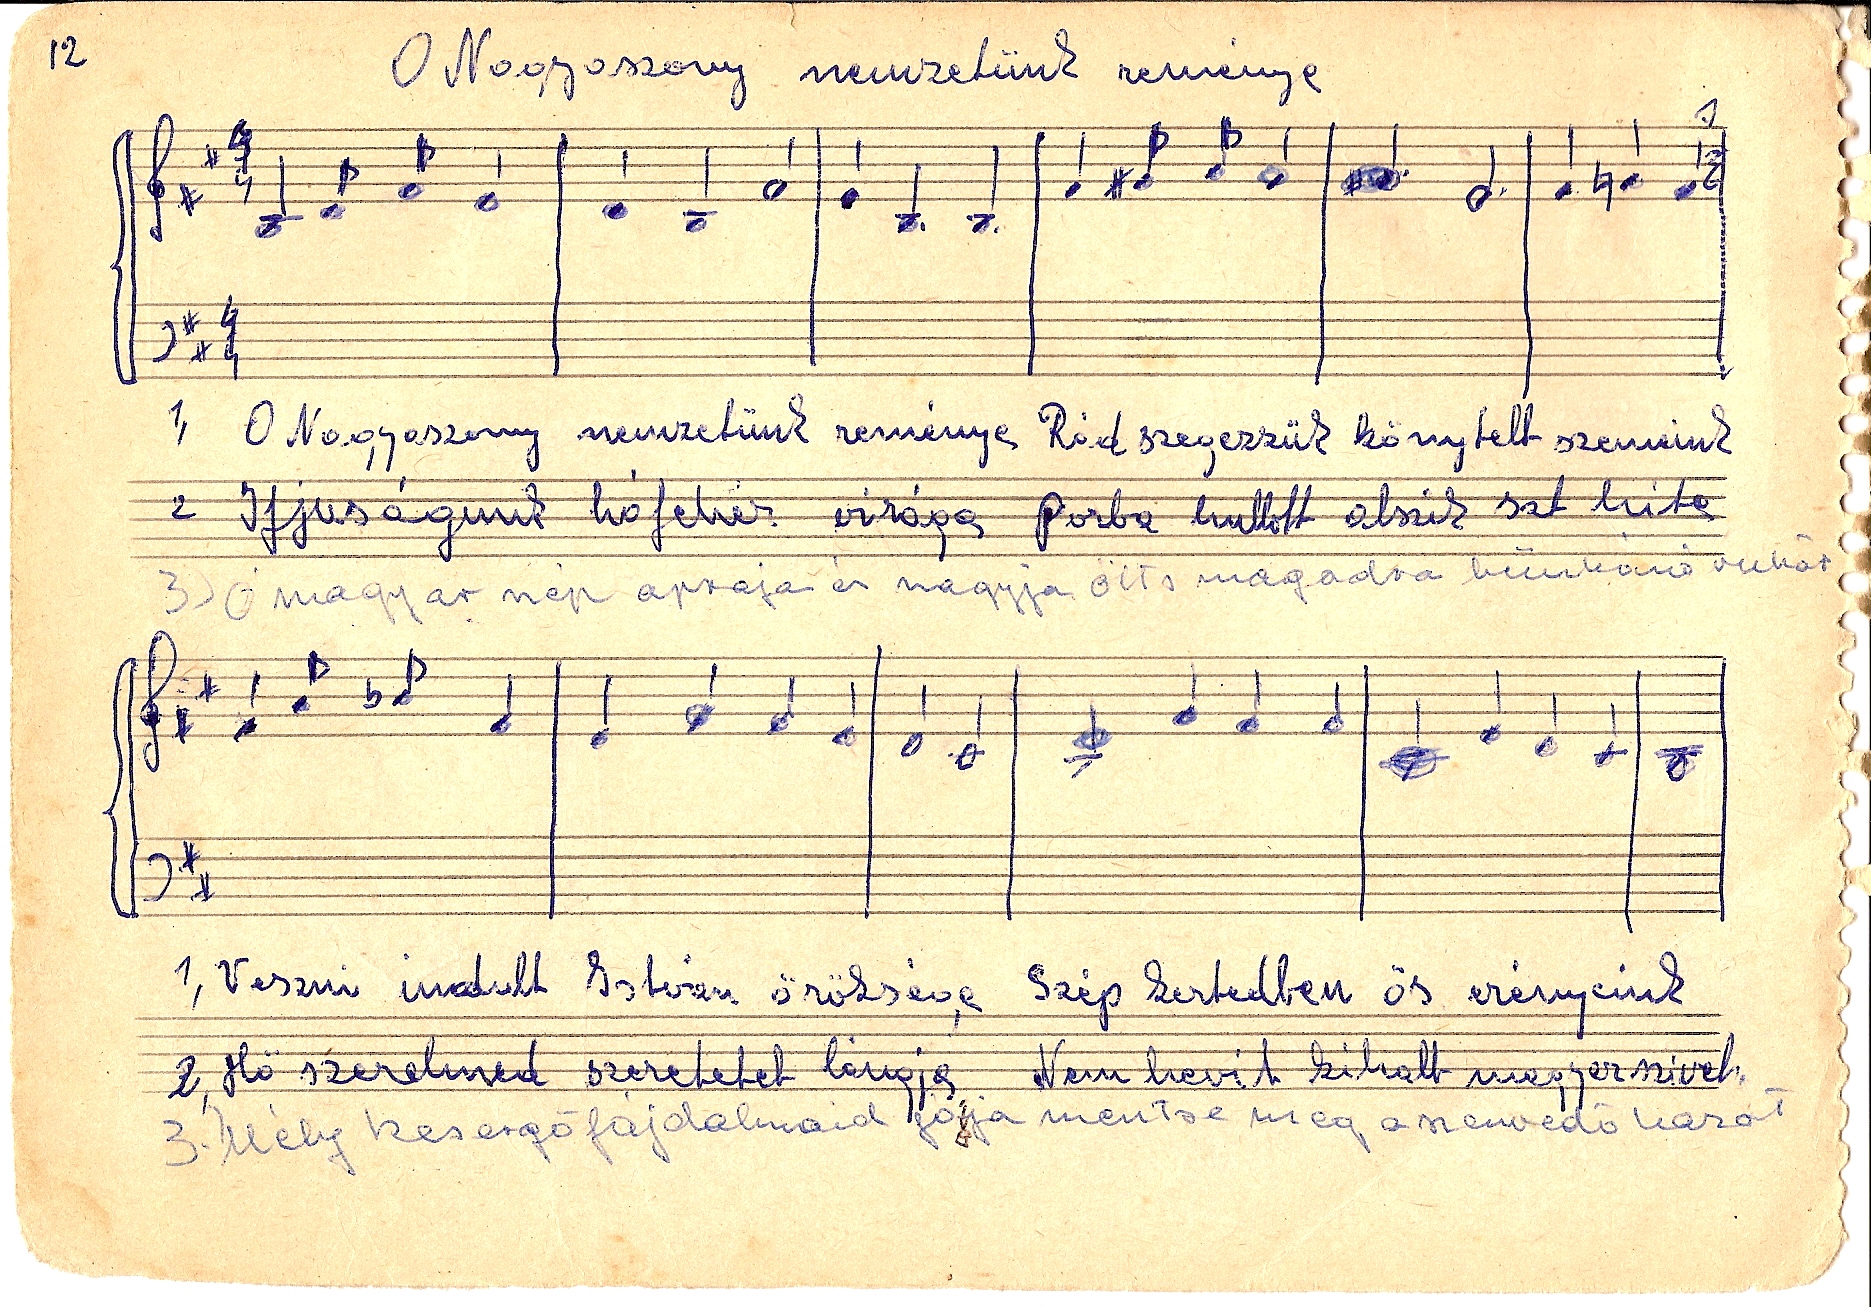 12
O Nagyaszony nemzetünk reménye
1, O Nagyaszony nemzetünk reménye Rád szegezzük könytelt szemeink
2 Ifjuságunk hófehér virága Porba hullott alszik szt hite
3) Ó magyar nép apraja és nagyja ölts magadra bűnbánó ruhát
1, Veszni indult István öröksége Szép kertedben ős erényeink
2, Hő szerelmed szeretetet lángja Nem hevit kihalt magyar szivet.
3. Mély kesergő fájdalmaid jajja mentse meg a szenvedő hazát